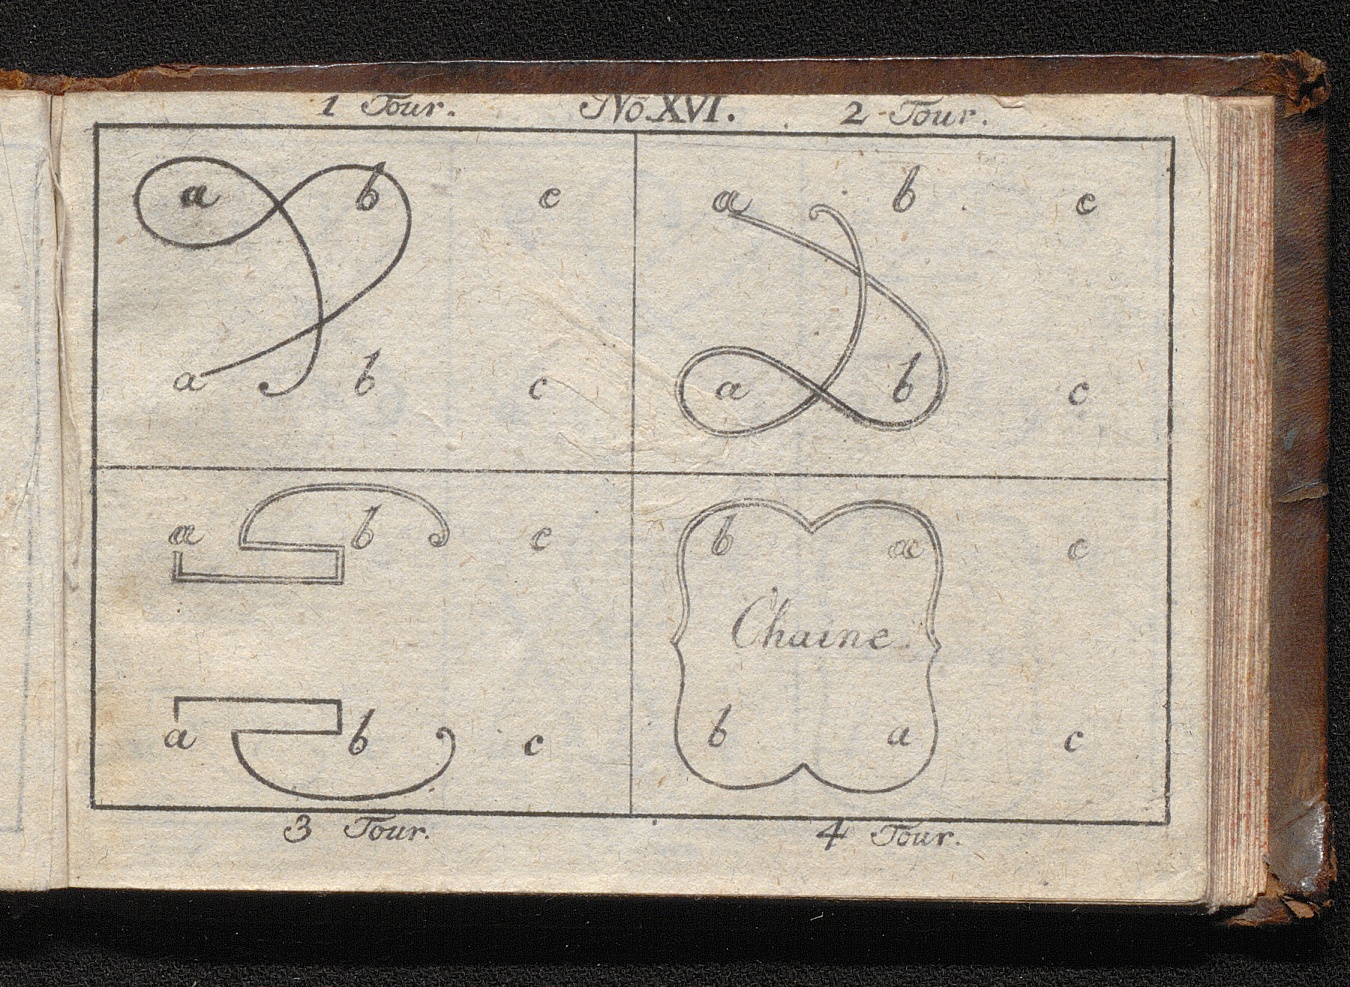 1 Tour. No. XVI. 2 Tour.
a b c
a b c
a b c
a b c
a b c
b a c
Chaine.
a b c
b a c
3 Tour. 4 Tour.